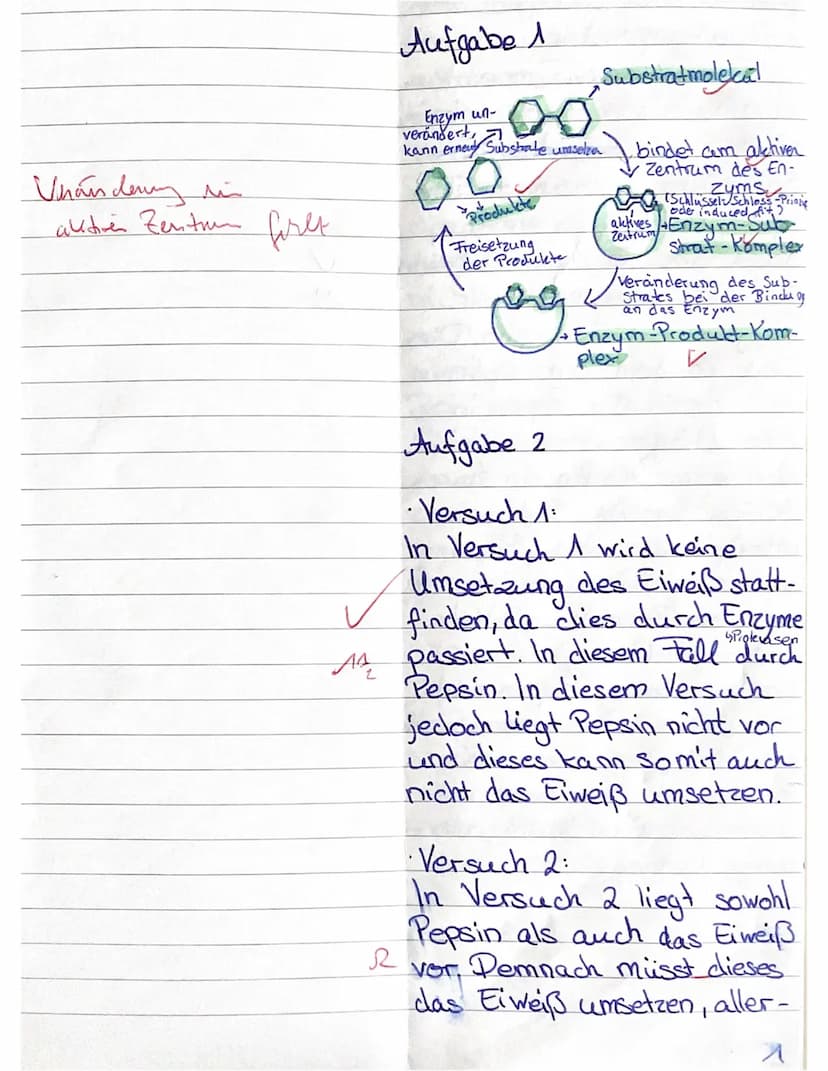 Aufgabe 1
Substratmolekül
Enzym un-
verändert,
kann erneut Substrate umsetzen
bindet am aktiven
Zentrum des En-
zyms
(Schlüssel-Schloss-Prinzip
oder induced fit)
Produkte
aktives
Zentrum
Enzym-Sub
strat-Komplex
Freisetzung
der Produkte
Veränderung des Sub-
strates bei der Bindung
an das Enzym
Enzym-Produkt-Kom-
plex
Veränderung im
aktiven Zentrum fehlt
Aufgabe 2
· Versuch 1:
In Versuch 1 wird keine
Umsetzung des Eiweiß statt-
finden, da dies durch Enzyme
↳Proteasen
passiert. In diesem Fall durch
Pepsin. In diesem Versuch
jedoch liegt Pepsin nicht vor
und dieses kann somit auch
nicht das Eiweiß umsetzen.
· Versuch 2:
In Versuch 2 liegt sowohl
Pepsin als auch das Eiweiß
R vor. Demnach müsst dieses
das Eiweiß umsetzen, aller-
1